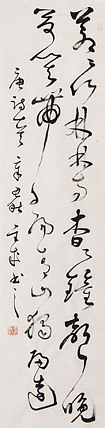 蒼蒼竹林寺杳杳鐘聲晚
荷笠帶陽青山獨歸遠
唐詩